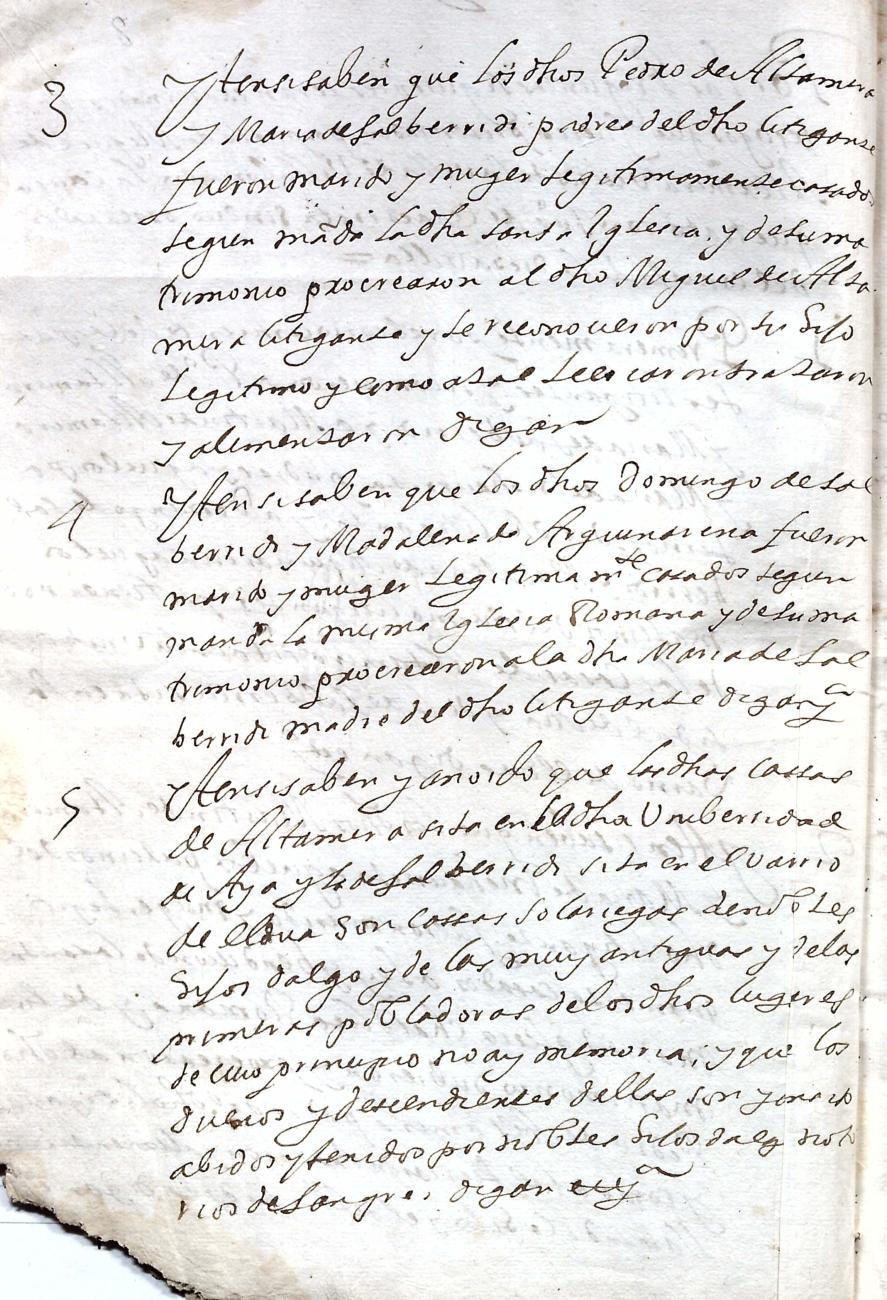 3 Yten si saben que los dhos Pedro de Altamira
y Maria de Salberridi padres del dho litigante
fueron marido y muger legitimamente casados
segun manda la dha santa Iglesia, y de su ma
trimonio procrearon al dho Miguel de Alta
mira litigante y le reconocieron por su hijo
legitimo y como a tal le criaron trataron
y alimentaron digan
4 Yten si saben que los dhos Domingo de Sal
berridi y Madalena de fueron
marido y muger legitimamte casados segun
manda la misma Iglesia Romana y de su ma
trimonio procrearon a la dha Maria de Sal
berridi madre del dho litigante digan
5 Yten si saben y an oido que las dhas cassas
de Altamira sita en la dha Unibersidad
de Aya y la de Salberridi sita en el varrio
de son cassas solariegas de nobles
hijos dalgo y de las muy antiguas y de las
primeras pobladoras de los dhos lugares
de cuio principio no ay memoria, y que los
dueños y descendientes dellas son y an sido
abidos y tenidos por nobles hijos dalgo noto
rios de sangre, digan